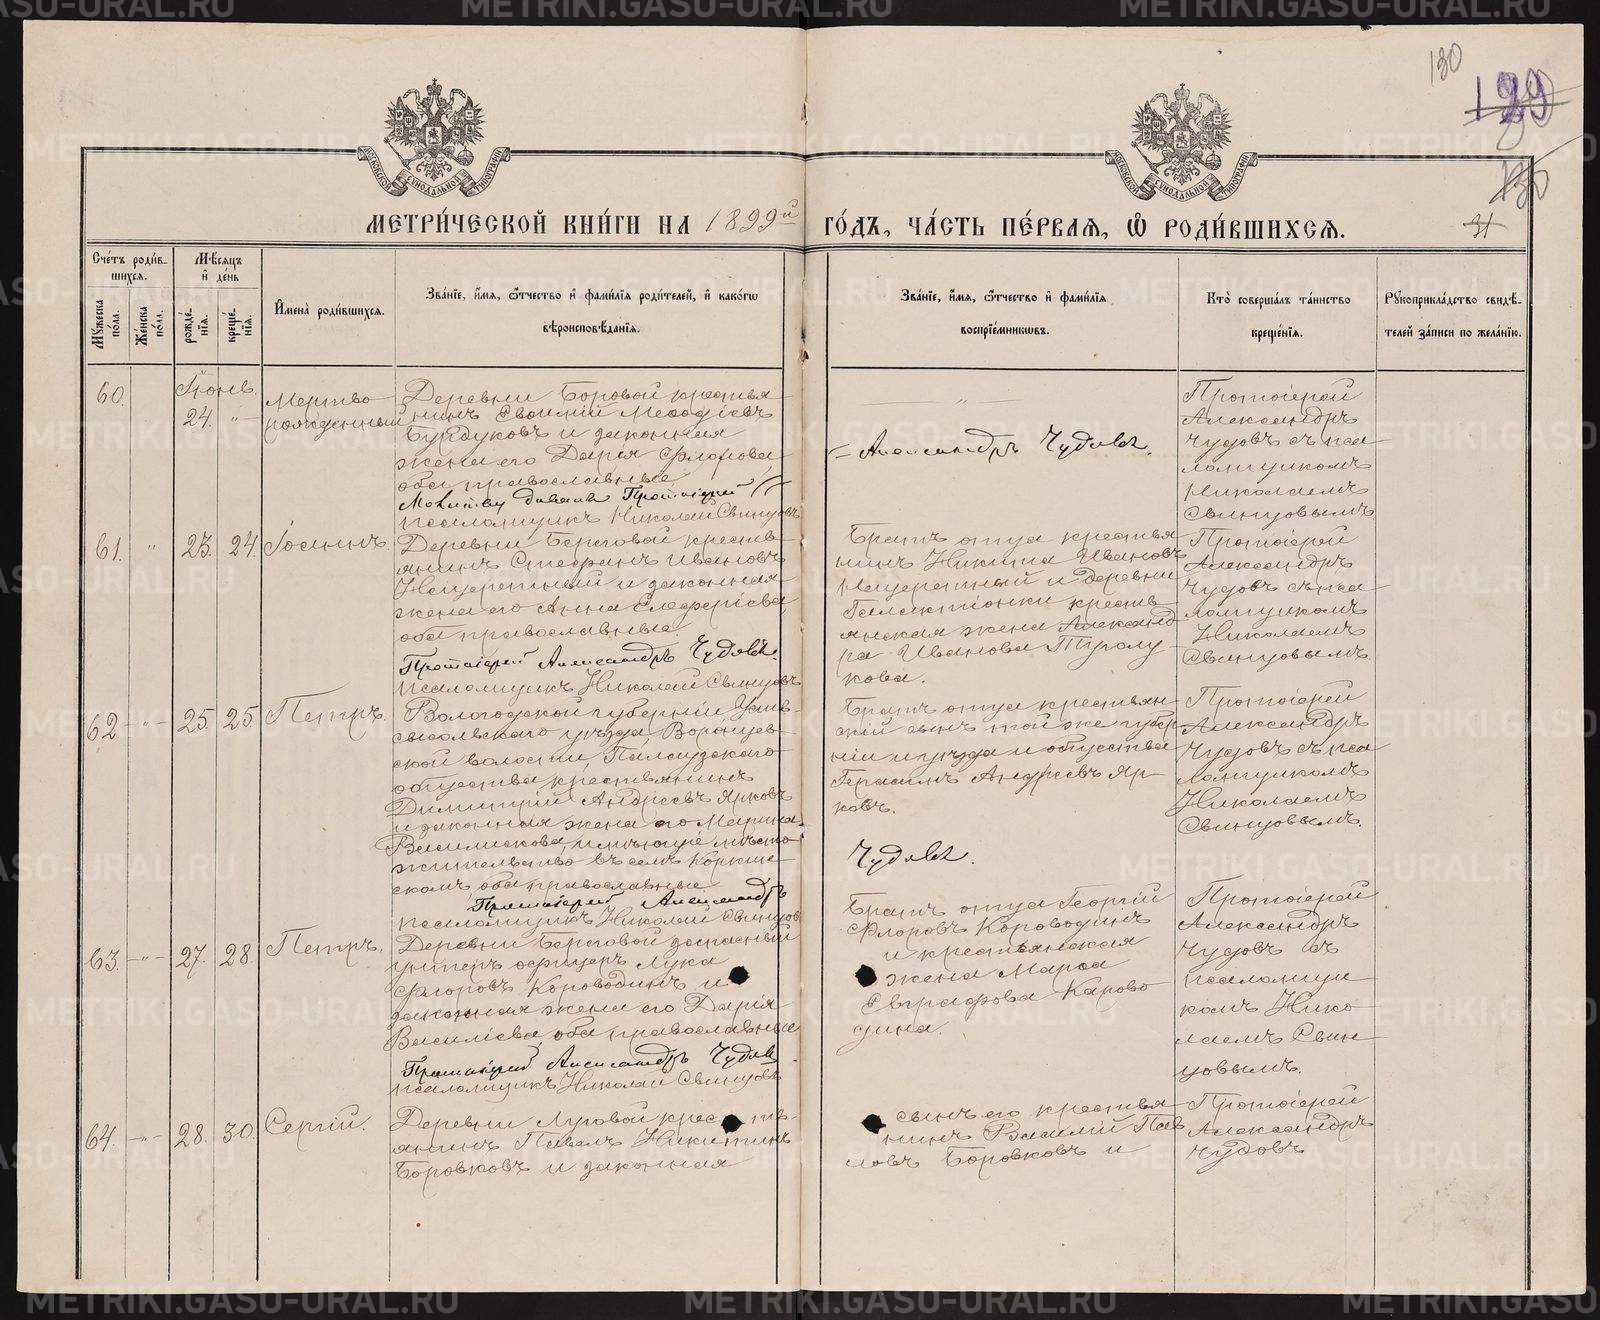 130
129
130
31
МОСКОВСКОЙ СУНОДАЛЬНОЙ ТИПОГРАФІИ
МОСКОВСКОЙ СУНОДАЛЬНОЙ ТИПОГРАФІИ
МЕТРИ́ЧЕСКОЙ КНИ́ГИ НА 1899й ГО́ДЪ, ЧА́СТЬ ПЕ́РВАѦ, Ѡ РОДИ́ВШИХСѦ.
Сче́тъ роди́в-
шихсѧ.
Мꙋжеска
по́ла.
Же́нска
по́ла.
Мѣ́сѧцъ
и҆ де́нь
рожде́-
нїѧ.
креще́-
нїѧ.
И҆мена̀ роди́вшихсѧ.
Зва́нїе, и҆́мѧ, ѻ҆́тчество и҆ фами́лїѧ роди́телей, и҆ како́гѡ
вѣроисповѣ́данїѧ.
Зва́нїе, и҆́мѧ, ѻ҆́тчество и҆ фами́лїѧ
воспрїе́мникѡвъ.
Кто̀ соверша́лъ та́инство
креще́нїѧ.
Рꙋкоприкла́дство свидѣ́-
телей за́писи по жела́нїю.
60.
Іюнь
24. "
Мертво
рожденный
Деревни Боровой крестья
нинъ Евѳимій Меѳодіевъ
Бурдуковъ и законная
жена его Дарія Флорова,
оба православные
Молитву давалъ Протоіерей
псаломщикъ Николай Свинцовъ
– " –
Александръ Чудовъ.
Протоіерей
Александръ
Чудовъ съ пса
ломщикомъ
Николаемъ
Свинцовымъ.
61. " 23. 24. Іоаннъ.
Деревни Береговой кресть-
янинъ Стефанъ Ивановъ
и законная
жена его Анна Елеферіева,
оба православные.
Протоіерей Александръ Чудовъ.
псаломщикъ Николай Свинцовъ
Братъ отца крестья
нинъ Никита Ивановъ
и деревни
Галактіонки кресть-
янская жена Александ
ра Иванова Турлу
кова.
Протоіерей
Александръ
Чудовъ съ пса
ломщикомъ
Николаемъ
Свинцовымъ.
62 – " – 25. 25 Петръ.
Вологодской губерніи Усть-
сысольскаго уѣзда Воронцев-
ской волости, Палаузскаго
общества крестьянинъ
Димитрій Андреевъ Ярковъ
и законная жена его Марина
Василискова, имѣющіе мѣсто
жительство въ селѣ Коркин-
скомъ, оба православные
Протоіерей Александръ
псаломщикъ Николай Свинцовъ
Братъ отца крестьян-
скій сынъ той же губер-
ніи и уѣзда и общества
Герасимъ Андреевъ Яр-
ковъ.
Чудовъ.
Протоіерей
Александръ
Чудовъ съ пса
ломщикомъ
Николаемъ
Свинцовымъ.
63. – " – 27. 28. Петръ.
Деревни Береговой запасный
унтеръ офицеръ Лука
Флоровъ Короводинъ и
законная жена его Дарія
Василіева, оба православные
Протоіерей Александръ Чудовъ.
псаломщикъ Николай Свинцовъ
Братъ отца Георгій
Флоровъ Короводинъ
и крестьянская
жена Марѳа
Евграфова Карово
дина.
Протоіерей
Александръ
Чудовъ съ
псаломщи
комъ Нико-
лаемъ Свин-
цовымъ.
64. – " – 28. 30. Сергій.
Деревни Луговой кресть-
янинъ Павелъ Никитинъ
Боровковъ и законная
сынъ его крестья
нинъ Василій Пав
ловъ Боровковъ и
Протоіерей
Александръ
Чудовъ
METRIKI.GASO-URAL.RU